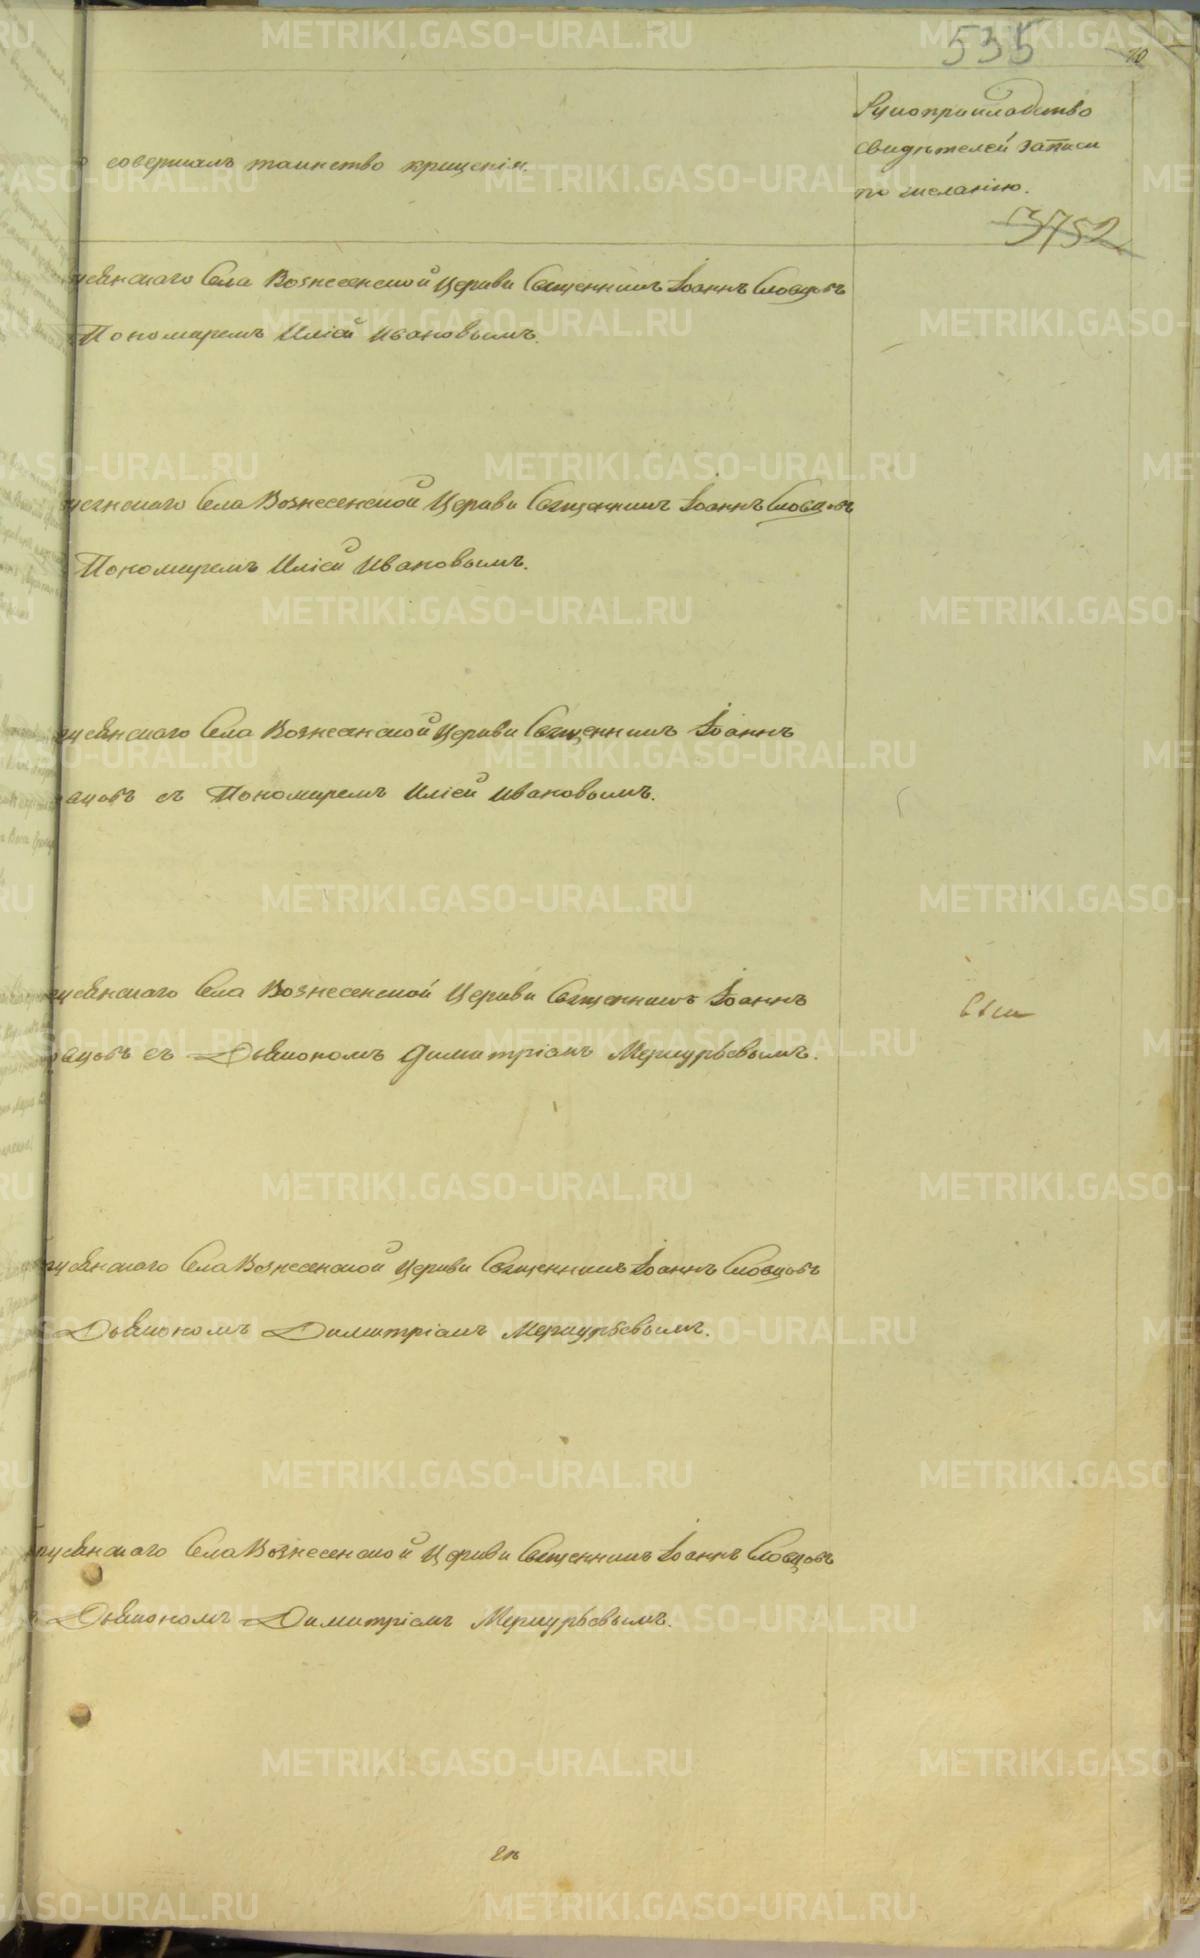 535
10
Рукоприкладство
свидѣтелей записи
по желанію.
3752
совершалъ таинство крещенія.
Села Вознесенской Церкви Священникъ Іоаннъ Словцовъ
Пономаремъ Иліей Ивановымъ.
Села Вознесенской Церкви Священникъ Іоаннъ Словцовъ
Пономаремъ Иліей Ивановымъ.
Села Вознесенской Церкви Священникъ Іоаннъ
съ Пономаремъ Иліей Ивановымъ.
Села Вознесенской Церкви Священникъ Іоаннъ
съ Дьякономъ Димитріемъ Меркурьевымъ.
Села Вознесенской Церкви Священникъ Іоаннъ Словцовъ
Дьякономъ Димитріемъ Меркурьевымъ.
Села Вознесенской Церкви Священникъ Іоаннъ Словцовъ
Дьякономъ Димитріемъ Меркурьевымъ.
METRIKI.GASO-URAL.RU